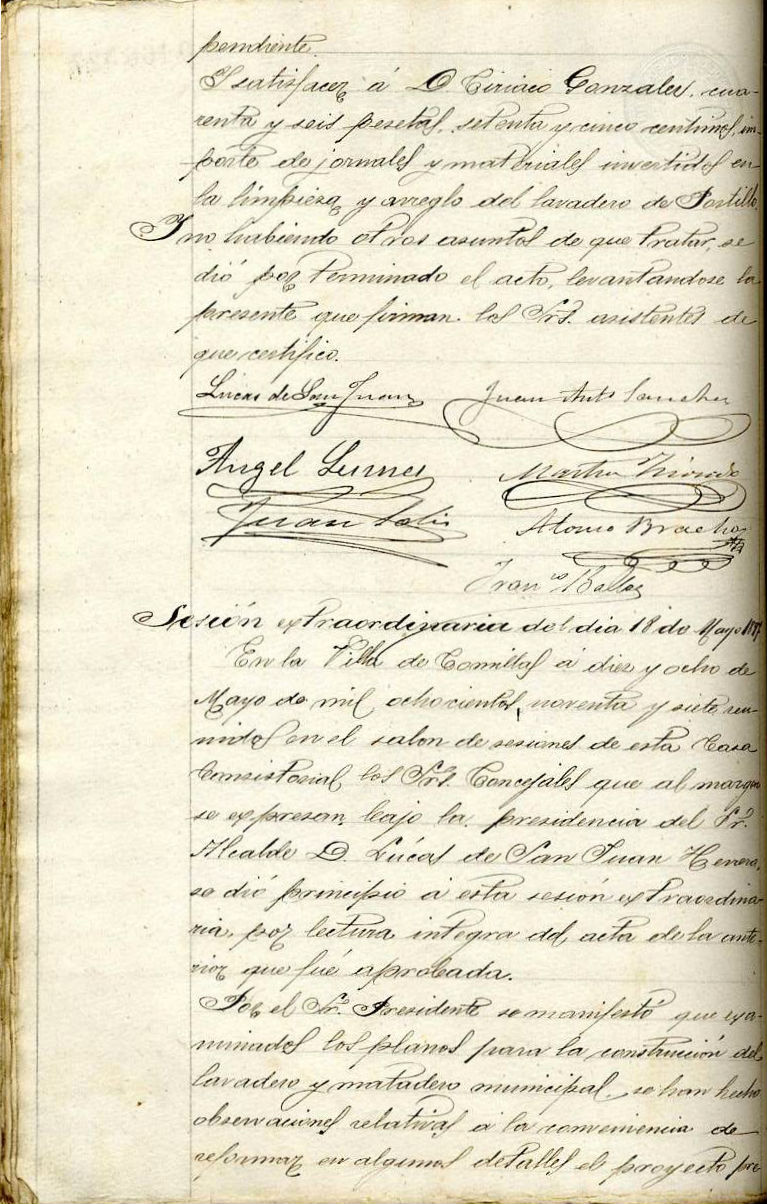 pendiente.
Y satisfacer á D Ciriaco Gonzalez, cua-
renta y seis pesetas, setenta y cinco centimos, im-
porte de jornales y materiales invertidos en
la limpieza y arreglo del lavadero de Portillo.
Y no habiendo otros asuntos de que tratar, se
dió por terminado el acto, levantandose la
presente que firman los Srs. asistentes de
que certifico.
Lucas de San Juan Juan Ant.º Sanchez
Angel Martin
Juan Solis Alonso
Fran.co
Sesión extraordinaria del dia 18 de Mayo 1897
En la Villa de Comillas á diez y ocho de
Mayo de mil ochocientos noventa y siete reu-
nidos en el salon de sesiones de esta Casa
Consistorial los Srs. Concejales que al margen
se expresan, bajo la presidencia del Sr.
Alcalde D. Lúcas de San Juan Herrero,
se dió principio á esta sesión extraordina-
ria, por lectura integra del acta de la ante-
rior que fué aprobada.
Por el Sr. Presidente se manifestó que exa-
minados los planos para la construcción del
lavadero y matadero municipal, se han hecho
observaciones relativas á la conveniencia de
reformar en algunos detalles el proyecto pre-